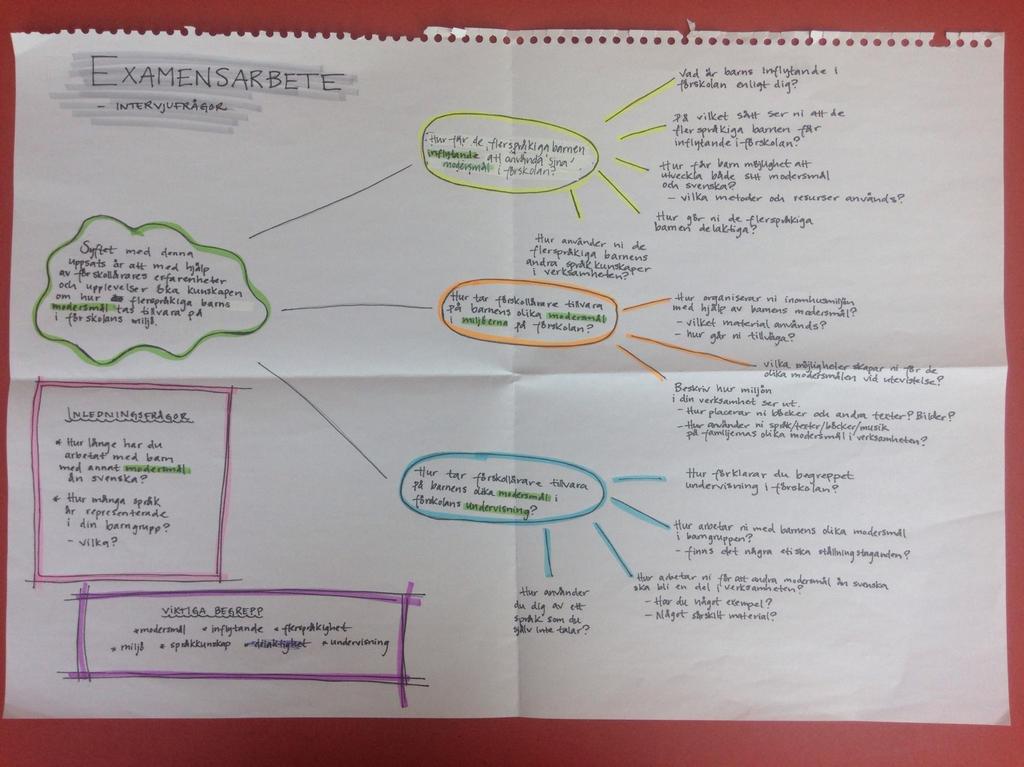 EXAMENSARBETE
- INTERVJUFRÅGOR
Syftet med denna
uppsats är att med hjälp
av förskollärares erfarenheter
och upplevelser öka kunskapen
om hur flerspråkiga barns
modersmål tas tillvara på
i förskolans miljö.
Hur får de flerspråkiga barnen
inflytande att använda 'sina'
modersmål i förskolan?
Vad är barns inflytande i
förskolan enligt dig?
På vilket sätt ser ni att de
flerspråkiga barnen får
inflytande i förskolan?
Hur får barn möjlighet att
utveckla både sitt modersmål
och svenska?
- vilka metoder och resurser används?
Hur gör ni de flerspråkiga
barnen delaktiga?
Hur använder ni de
flerspråkiga barnens
andra språkkunskaper
i verksamheten?
Hur tar förskollärare tillvara
på barnens olika modersmål
i miljöerna på förskolan?
Hur organiserar ni inomhusmiljön
med hjälp av barnens modersmål?
- vilket material används?
- hur går ni tillväga?
vilka möjligheter skapar ni för de
olika modersmålen vid utevistelse?
Beskriv hur miljön
i din verksamhet ser ut.
- Hur placerar ni böcker och andra texter? Bilder?
- Hur använder ni språk/texter/böcker/musik
på familjernas olika modersmål i verksamheten?
Hur tar förskollärare tillvara
på barnens olika modersmål i
förskolans undervisning?
Hur förklarar du begreppet
undervisning i förskolan?
Hur arbetar ni med barnens olika modersmål
i barngruppen?
- finns det några etiska ställningstaganden?
Hur arbetar ni för att andra modersmål än svenska
ska bli en del i verksamheten?
- Har du något exempel?
- Något särskilt material?
Hur använder
du dig av ett
språk som du
själv inte talar?
INLEDNINGSFRÅGOR
* Hur länge har du
arbetat med barn
med annat modersmål
än svenska?
* Hur många språk
är representerade
i din barngrupp?
- vilka?
VIKTIGA BEGREPP
* modersmål * inflytande * flerspråkighet
* miljö * språkkunskap * delaktighet * undervisning